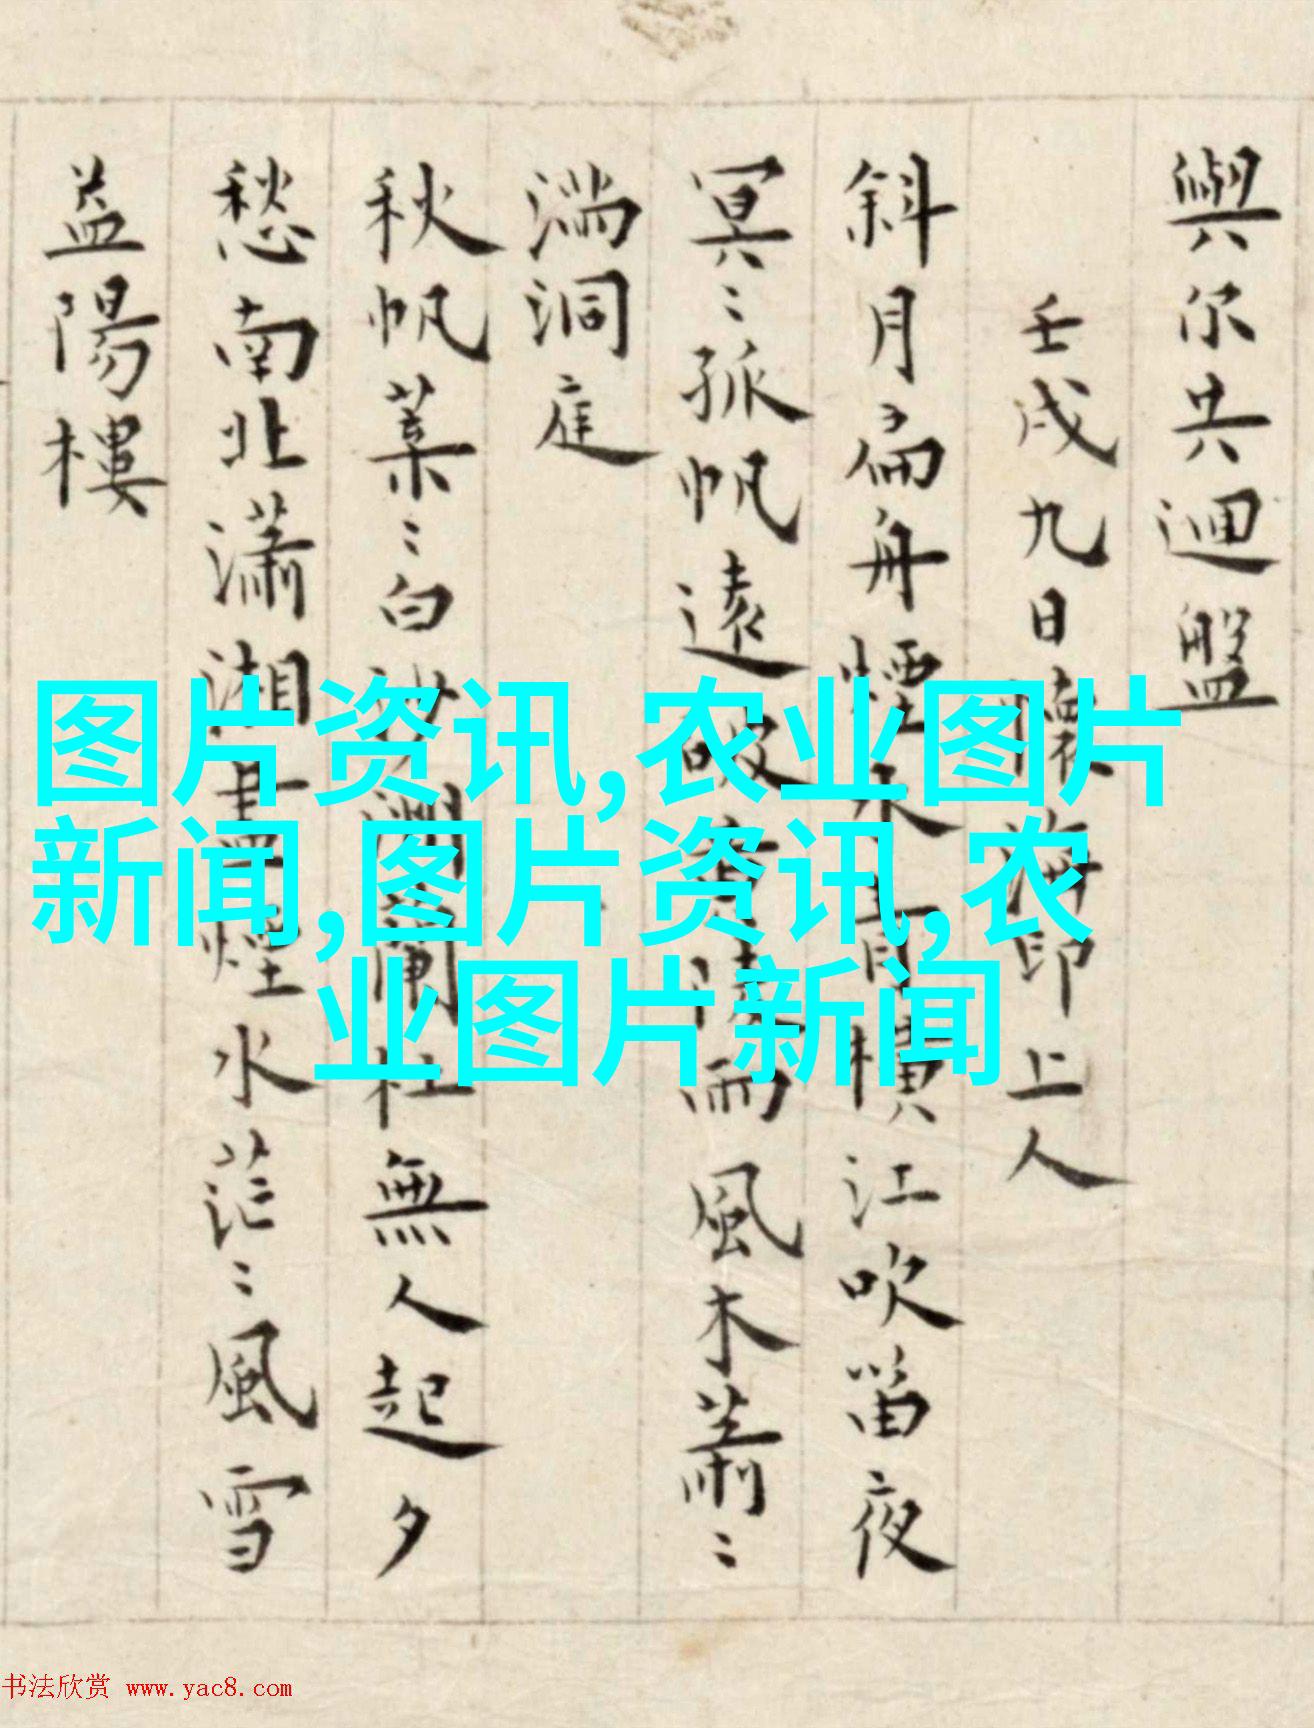 與尔共迴盤
壬戌九日懷海印上人
斜月扁舟煙水 横江吹笛夜
冥〻孤帆遠 破 雨風木蕭〻
湍洞庭
秋帆葉〻白沙 蘭杜無人起夕
愁南北瀟湘畫煙水茫〻風雪
益陽樓
图片资讯,农业图片
新闻,图片资讯,农
业图片新闻
书法欣赏 www.yac8.com